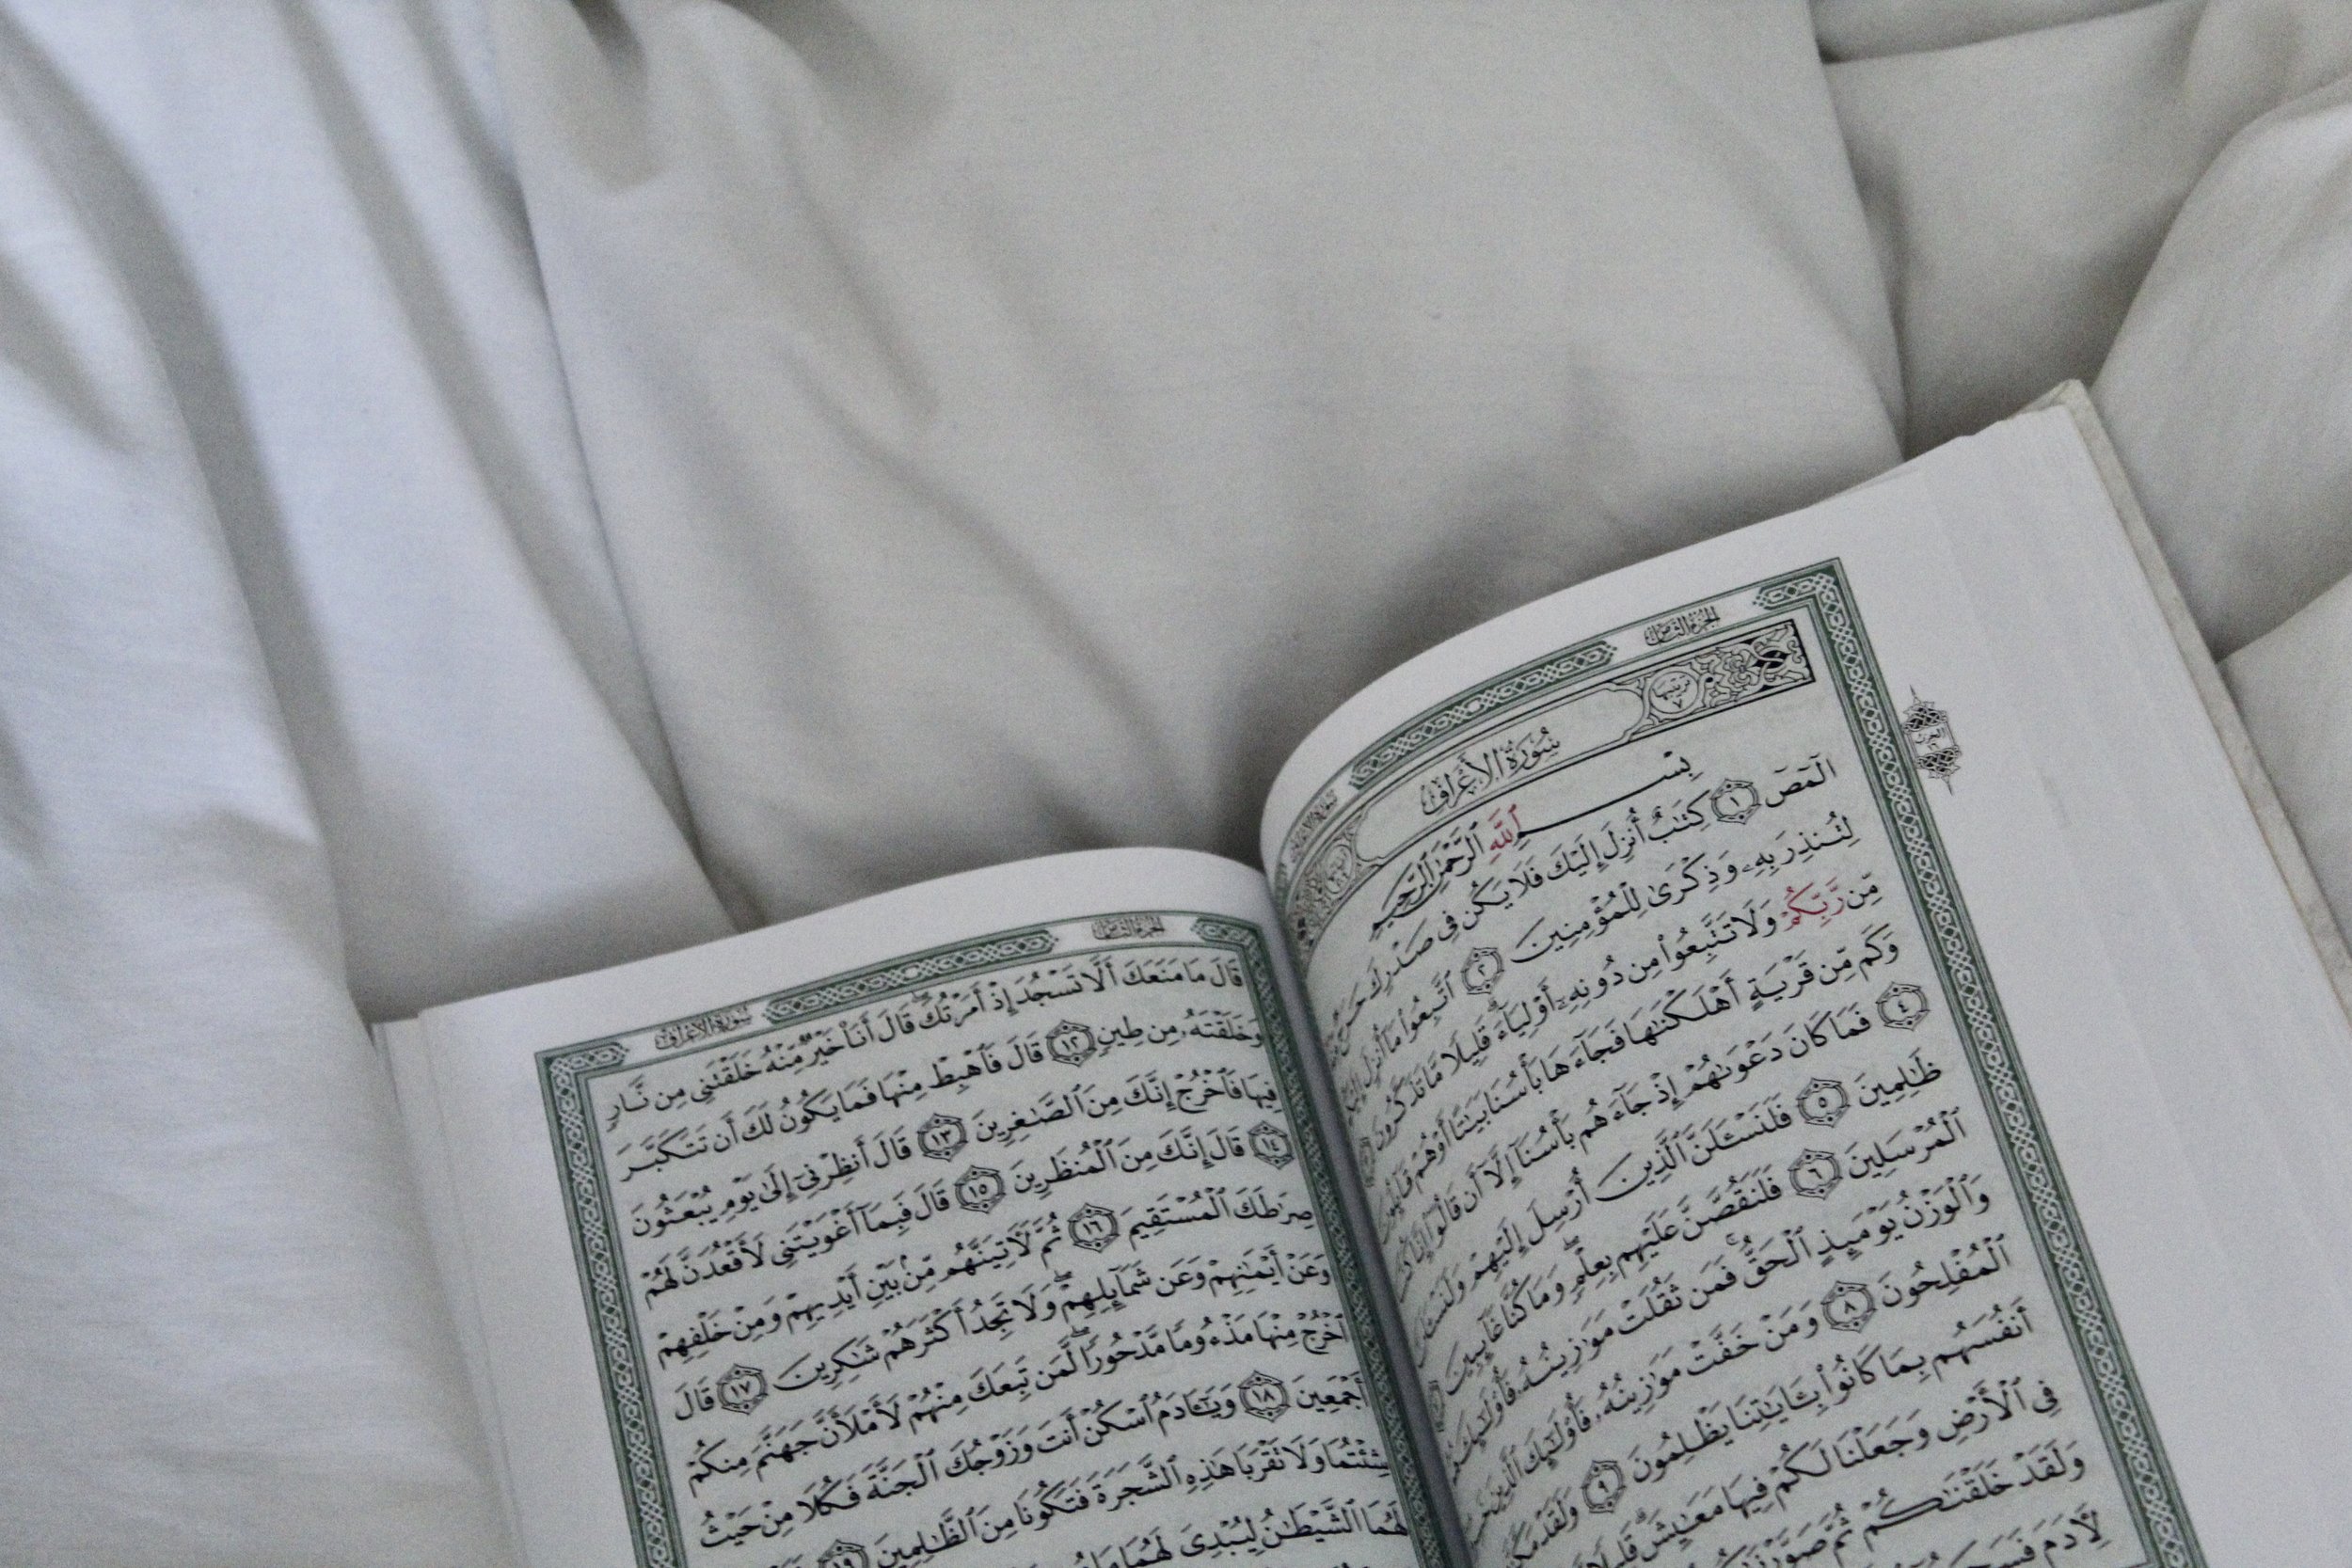 الجزء الثامن
سورة الأعراف
ترتيبها ٧
سُورَةُ الأَعْرَافِ
بِسْمِ ٱللَّهِ ٱلرَّحْمَٰنِ ٱلرَّحِيمِ
الٓمٓصٓ ١ كِتَٰبٌ أُنزِلَ إِلَيْكَ فَلَا يَكُن فِى صَدْرِكَ حَرَجٌ
لِتُنذِرَ بِهِۦ وَذِكْرَىٰ لِلْمُؤْمِنِينَ ٢ ٱتَّبِعُوا۟ مَآ أُنزِلَ
مِّن رَّبِّكُمْ وَلَا تَتَّبِعُوا۟ مِن دُونِهِۦٓ أَوْلِيَآءَ قَلِيلًا مَّا تَذَكَّرُونَ
وَكَم مِّن قَرْيَةٍ أَهْلَكْنَٰهَا فَجَآءَهَا بَأْسُنَا بَيَٰتًا أَوْ هُمْ قَآئِلُونَ
٤ فَمَا كَانَ دَعْوَىٰهُمْ إِذْ جَآءَهُم بَأْسُنَآ إِلَّآ أَن قَالُوٓا۟ إِنَّا كُنَّا
ظَٰلِمِينَ ٥ فَلَنَسْـَٔلَنَّ ٱلَّذِينَ أُرْسِلَ إِلَيْهِمْ
ٱلْمُرْسَلِينَ ٦ فَلَنَقُصَّنَّ عَلَيْهِم بِعِلْمٍ وَمَا كُنَّا غَآئِبِينَ
وَٱلْوَزْنُ يَوْمَئِذٍ ٱلْحَقُّ فَمَن ثَقُلَتْ مَوَٰزِينُهُۥ فَأُو۟لَٰٓئِكَ هُمُ
ٱلْمُفْلِحُونَ ٨ وَمَنْ خَفَّتْ مَوَٰزِينُهُۥ فَأُو۟لَٰٓئِكَ ٱلَّذِينَ
أَنفُسَهُم بِمَا كَانُوا۟ بِـَٔايَٰتِنَا يَظْلِمُونَ ٩ وَلَقَدْ
فِى ٱلْأَرْضِ وَجَعَلْنَا لَكُمْ فِيهَا مَعَٰيِشَ
وَلَقَدْ خَلَقْنَٰكُمْ ثُمَّ
لِـَٔادَمَ
الجزء الثامن
سورة الأعراف
قَالَ مَا مَنَعَكَ أَلَّا تَسْجُدَ إِذْ أَمَرْتُكَ قَالَ أَنَا۠ خَيْرٌ مِّنْهُ خَلَقْتَنِى مِن نَّارٍ
وَخَلَقْتَهُۥ مِن طِينٍ ١٢ قَالَ فَٱهْبِطْ مِنْهَا فَمَا يَكُونُ لَكَ أَن تَتَكَبَّرَ
فِيهَا فَٱخْرُجْ إِنَّكَ مِنَ ٱلصَّٰغِرِينَ ١٣ قَالَ أَنظِرْنِىٓ إِلَىٰ يَوْمِ يُبْعَثُونَ
١٤ قَالَ إِنَّكَ مِنَ ٱلْمُنظَرِينَ ١٥ قَالَ فَبِمَآ أَغْوَيْتَنِى لَأَقْعُدَنَّ لَهُمْ
صِرَٰطَكَ ٱلْمُسْتَقِيمَ ١٦ ثُمَّ لَـَٔاتِيَنَّهُم مِّنۢ بَيْنِ أَيْدِيهِمْ وَمِنْ خَلْفِهِمْ
وَعَنْ أَيْمَٰنِهِمْ وَعَن شَمَآئِلِهِمْ وَلَا تَجِدُ أَكْثَرَهُمْ شَٰكِرِينَ ١٧ قَالَ
ٱخْرُجْ مِنْهَا مَذْءُومًا مَّدْحُورًا لَّمَن تَبِعَكَ مِنْهُمْ لَأَمْلَأَنَّ جَهَنَّمَ مِنكُمْ
أَجْمَعِينَ ١٨ وَيَٰٓـَٔادَمُ ٱسْكُنْ أَنتَ وَزَوْجُكَ ٱلْجَنَّةَ فَكُلَا مِنْ حَيْثُ
شِئْتُمَا وَلَا تَقْرَبَا هَٰذِهِ ٱلشَّجَرَةَ فَتَكُونَا مِنَ ٱلظَّٰلِمِينَ ١٩
لَهُمَا ٱلشَّيْطَٰنُ لِيُبْدِىَ لَهُمَا